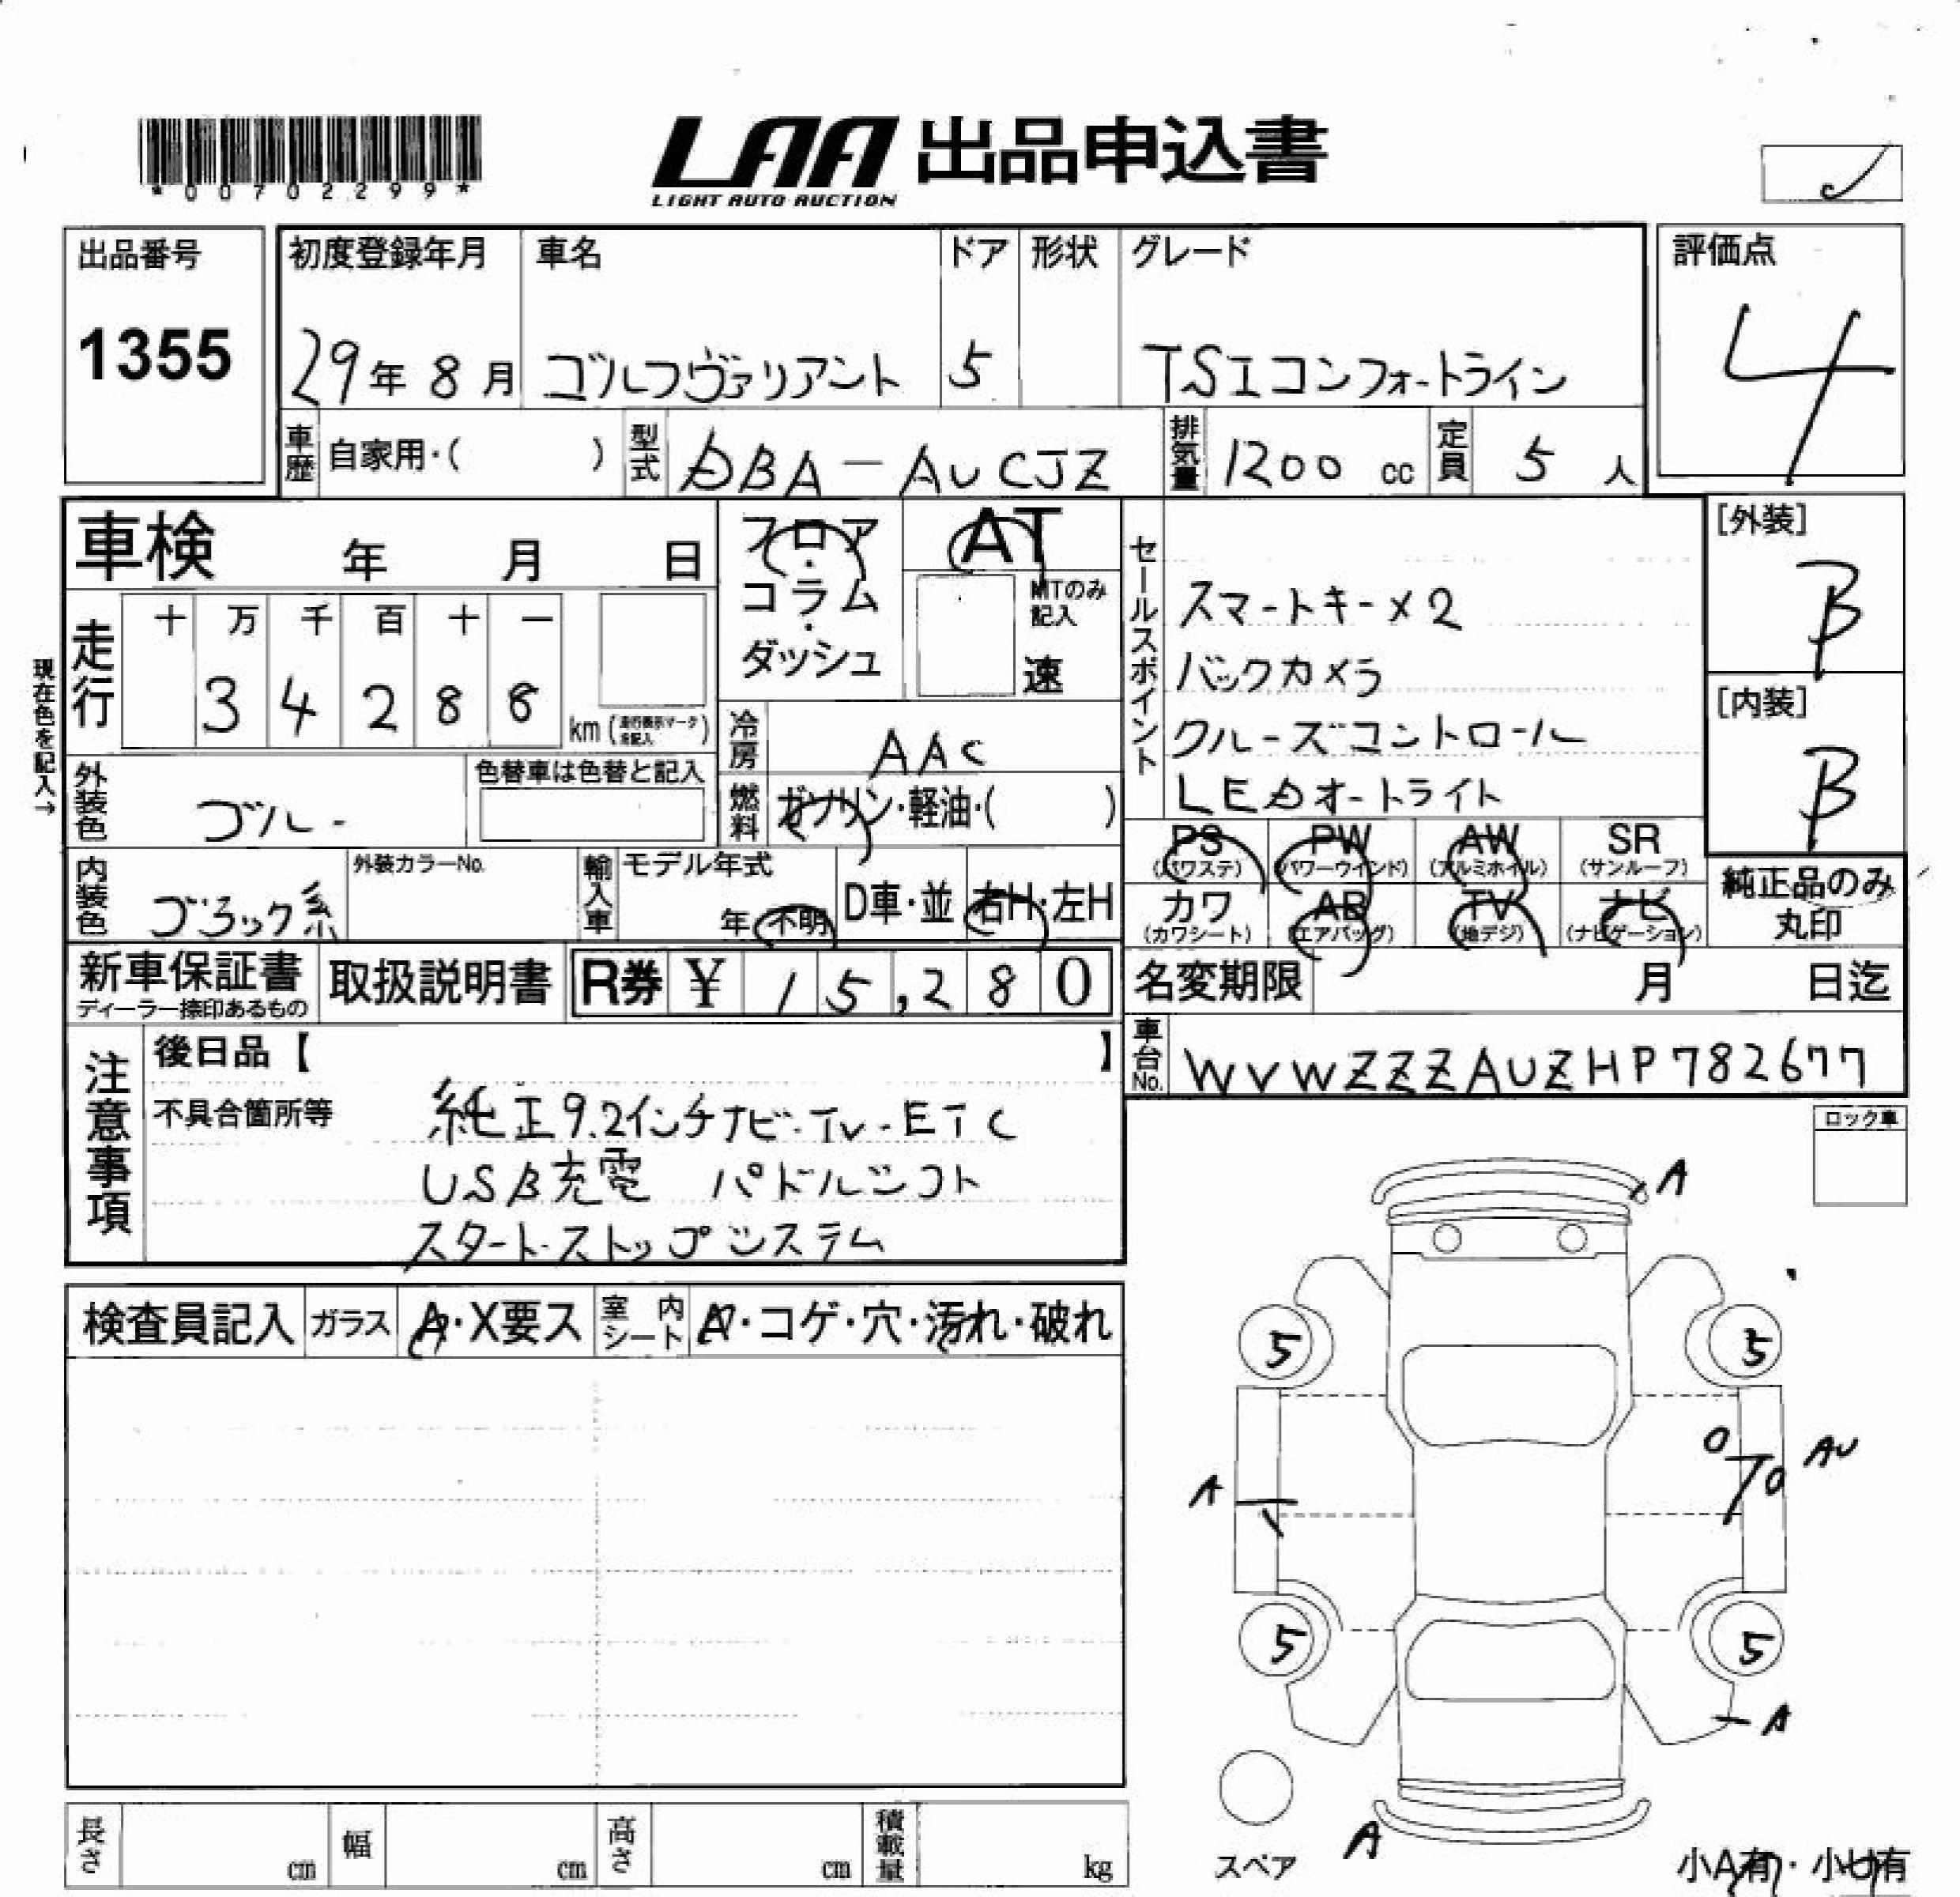 *00702299*
LAA 出品申込書
LIGHT AUTO AUCTION
出品番号
1355
初度登録年月
29年 8月
車名
ゴルフヴァリアント
ドア
5
形状
グレード
TSIコンフォートライン
評価点
4
車歴 自家用・( )
型式 DBA-AUCJZ
排気量 1200 cc
定員 5 人
車検 年 月 日
フロア・コラム・ダッシュ
AT
MTのみ記入
速
セールスポイント
スマートキー×2
バックカメラ
クルーズコントロール
LEDオートライト
[外装]
B
[内装]
B
現在色を記入→
走行 十 万 千 百 十 一
3 4 2 8 8
km (走行表示マーク未記入)
冷房 AAC
燃料 ガソリン・軽油・( )
外装色 ブルー
色替車は色替と記入
内装色 ブラック系
外装カラーNo.
輸入車
モデル年式
年 不明
D車・並
右H・左H
PS (パワステ)
PW (パワーウインド)
AW (アルミホイル)
SR (サンルーフ)
カワ (カワシート)
AB (エアバッグ)
TV (地デジ)
ナビ (ナビゲーション)
純正品のみ
丸印
新車保証書
ディーラー捺印あるもの
取扱説明書
R券 ¥ 15,280
名変期限 月 日迄
車台No. WVWZZZAUZHP782677
注意事項
後日品【 】
不具合箇所等
純正9.2インチナビ・TV・ETC
USB充電 パドルシフト
スタート・ストップシステム
ロック車
検査員記入
ガラス A・X要ス
室内シート A・コゲ・穴・汚れ・破れ
A
5
5
A
AU
5
5
A
A
スペア
小A有・小U有
長さ cm
幅 cm
高さ cm
積載量 kg